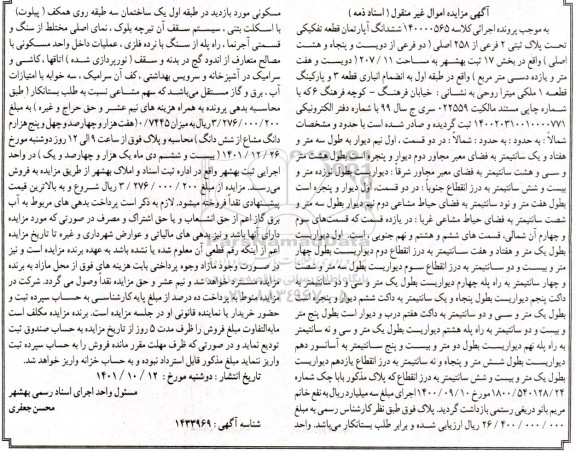 آگهی مزایده اموال غیر منقول ( اسناد ذمه )
به موجب پرونده اجرائی کلاسه ۱۴۰۰۰۰۵۶۵ ششدانگ آپارتمان قطعه تفکیکی
تحت پلاک ثبتی ۲ فرعی از ۲۵۸ اصلی ( دو فرعی از دویست و پنجاه و هشت
اصلی ) واقع در بخش ۱۷ ثبت بهشهر به مساحت ۲۰۷/۱۱ ( دویست و هفت
متر و یازده دسی متر مربع ) واقع در طبقه اول به انضمام انباری قطعه ۳ و پارکینگ
قطعـه ۱ ملکی میترا روحی به نشـانی : خیابان فرهنگ - کوچه فرهنگ ۶ که با
شـماره چاپی مستند مالکیت ۰۲۲۵۵۹ سری ج سال ۹۹ با شماره دفتر الکترونیکی
۱۴۰۰۲۰۳۱۰۰۱۰۰۰۰۷۷۱ ثبت گردیده و صادر شده است با حدود و مشخصات
شمالاً : به حدود : شمالا : در دو قسمت ، اول نیم دیوار به طول سه متر و
هفتاد و یک سانتیمتر به فضای معبر مجاور دوم دیوار و پنجره است بطول هشت متر
و سی و هشت سانتیمتر به فضای معبر مجاور شرقاً : دیواریست بطول نوزده متر و
بیست و شش سانتیمتر به درز انقطاع جنوباً : در دو قسمت، اول دیوار و پنجره است
بطول هفت متر و نود سانتیمتر به فضای حیاط مشاعی دوم نیم دیوار بطول سه متر و
شصت سانتیمتر به فضای حیاط مشاعی غربا : در یازده قسمت که قسمت‌های سوم
و چهارم آن شمالی، قسمت های ششم و هشتم و نهم جنوبی ، است . اول دیواریست
بطول یک متر و هفتاد و هفت سانتیمتر به درز انقطاع دوم دیواریست بطول چهار
متر و بیست و دو سانتیمتر به درز انقطاع سوم دیواریست بطول سه متر و شصت
و چهار سانتیمتر به راه پله چهارم دیواریست بطول یک متر و سی و دو سانتیمتر به
داکت پنجم دیواریست بطول پنجاه و یک سانتیمتر به داکت ششم دیوار و پنجره است
بطول یک متر و سی و دو سانتیمتر به داکت هفتم درب و دیوار است بطول پنج متر
و بیست و دو سانتیمتر به راه پله هشتم دیواریست بطول یک متر و سی و نه سانتیمتر
به راه پله نهم دیواریست بطول دو متر و بیست و پنج سانتیمتر به آسانسور دهم
دیواریست بطول شش متر و پنجاه و نه سانتیمتر به درز انقطاع یازدهم دیواریست
بطول یک متر و بیست و شش سانتیمتر به درز انقطاع که پلاک مذکور بابا چک شماره
۱۸۰۰/۵۴۰۱۲۸/۲۴ مورخ ۱۴۰۰/۰۹/۱۰ اجرای مبلغ سه میلیارد ریال به نفع خانم
مریم بانو دریغی رستمی بازداشت گردید. پلاک فوق طبق نظر کارشناس رسمی به مبلغ
۲۶/۴۰۰/۰۰۰/۰۰۰ ریال ارزیابی شـده و برابر طلب بستانکار می‌باشد. واحد
مسکونی مورد بازدید در طبقه اول یک ساختمان سه طبقه روی همکف ( پیلوت )
با اسکلت بتنی ، سیستم سقف آن تیرچه بلوک ، نمای اصلی مختلط از سنگ و
قسمتی آجرنما ، راه پله از سنگ با نرده فلزی ، عملیات داخل واحد مسکونی با
مصالح متعارف از اندود گچ در بدنه و سقف ( نورپردازی شده ) اتاقها ، کاشی و
سرامیک در آشپزخانه و سرویس بهداشتی ، کف آن سرامیک ، سه خوابه با امتیازات
آب ، برق و گاز مستقل می‌باشد که سهم مشاعی نسبت به طلب بستانکار ( طبق
محاسبه بدهی پرونده به همراه هزینه های نیم عشر و حق حراج و غیره ) به مبلغ
۳/۲۷۶/۰۰۰/۲۰۰ ریال به میزان ۰/۷۴۴۵ ( هفت هزار و چهارصد و چهل و پنج هزارم
دانگ مشاع از شش دانگ ) محاسبه و پلاک فوق از ساعت ۹ الی ۱۲ روز دوشنبه مورخ
۱۴۰۱/۱۲/۲۶ ( بیست و ششم دی ماه یک هزار و چهارصد و یک ) در واحد
اجرایی ثبت بهشهر واقع در اداره ثبت اسناد و املاک بهشهر از طریق مزایده به فروش
می‌رسد. مزایده از مبلغ ۳/۲۷۶/۰۰۰/۲۰۰ ریال شروع و به بالاترین قیمت
پیشنهادی نقداً فروخته میشود. لازم به ذکر است پرداخت بدهی های مربوط به آب
برق گاز اعم از حق انشعاب و یا حق اشتراک و مصرف در صورتی که مورد مزایده
دارای آنها باشد و نیز بدهی های مالیاتی و عوارض شهرداری و غیره تا تاریخ مزایده
اعم از اینکه رقم قطعی آن معلوم شده یا نشده باشد به عهده برنده مزایده است و نیز
در صورت وجود مازاد وجوه پرداختی بابت هزینه های فوق از محل مازاد به برنده
مزایده مسترد خواهد شد و نیم عشر و حق مزایده نقداً وصول می گردد. شرکت در
مزایده منوط به پرداخت ده درصد از مبلغ پایه کارشناسی به حساب سپرده ثبت و
حضور خریدار یا نماینده قانونی او در جلسه مزایده است. برنده مزایده مکلف است
مابه‌التفاوت مبلغ فروش را ظرف مدت ۵ روز از تاریخ مزایده به حساب صندوق ثبت
تودیع نماید و در صورتی که ظرف مهلت مقرر مانده فروش را به حساب سپرده ثبت
واریز ننماید مبلغ مذکور قابل استرداد نبوده و به حساب خزانه واریز خواهد شد.
تاریخ انتشار : دوشنبه مورخ : ۱۴۰۱/۱۰/۱۲
مسئول واحد اجرای اسناد رسمی بهشهر
محسن جعفری
شناسه آگهی : ۱۴۳۳۹۶۹